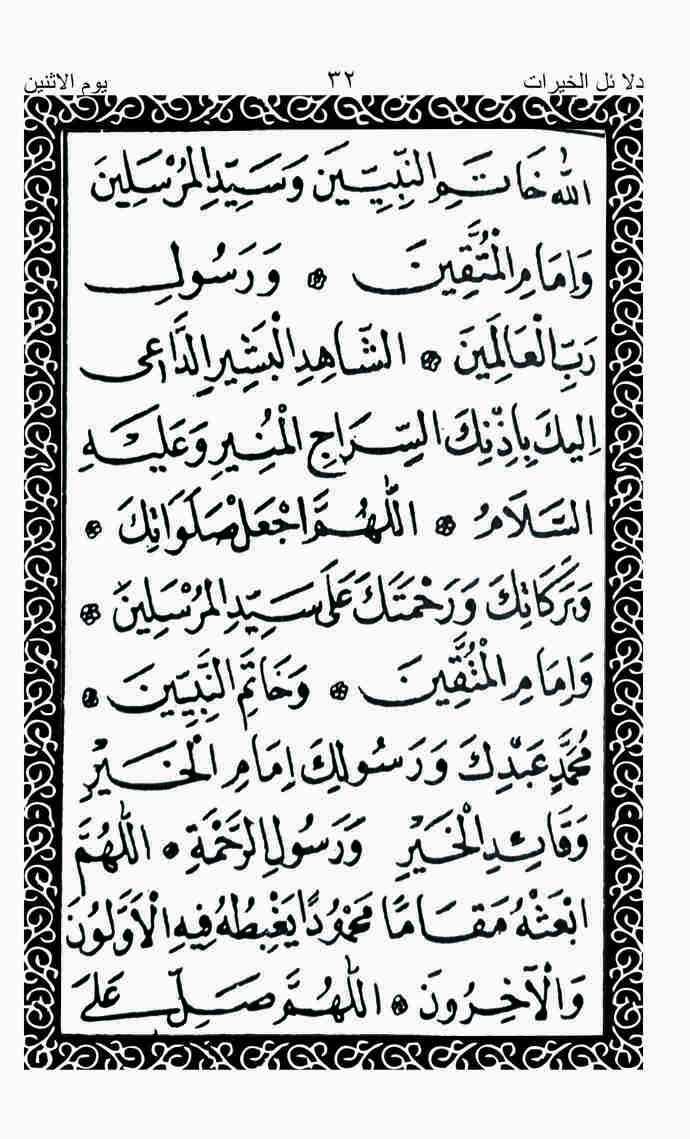 دلائل الخيرات ٣٢ يوم الاثنين
اللّٰهِ خَاتَمِ النَّبِيِّينَ وَسَيِّدِ الْمُرْسَلِينَ
وَاِمَامِ الْمُتَّقِينَ ۞ وَرَسُولِ
رَبِّ الْعَالَمِينَ ۞ الشَّاهِدِ الْبَشِيرِ الدَّاعِى
اِلَيْكَ بِاِذْنِكَ السِّرَاجِ الْمُنِيرِ وَعَلَيْهِ
السَّلَامُ ۞ اَللّٰهُمَّ اجْعَلْ صَلَوَاتِكَ ۞
وَبَرَكَاتِكَ وَرَحْمَتَكَ عَلَى سَيِّدِ الْمُرْسَلِينَ ۞
وَاِمَامِ الْمُتَّقِينَ ۞ وَخَاتَمِ النَّبِيِّينَ ۞
مُحَمَّدٍ عَبْدِكَ وَرَسُولِكَ اِمَامِ الْخَيْرِ
وَقَائِدِ الْخَيْرِ وَرَسُولِ الرَّحْمَةِ ۞ اَللّٰهُمَّ
ابْعَثْهُ مَقَامًا مَحْمُودًا يَغْبِطُهُ فِيهِ الْاَوَّلُونَ
وَالْآخِرُونَ ۞ اَللّٰهُمَّ صَلِّ عَلَى